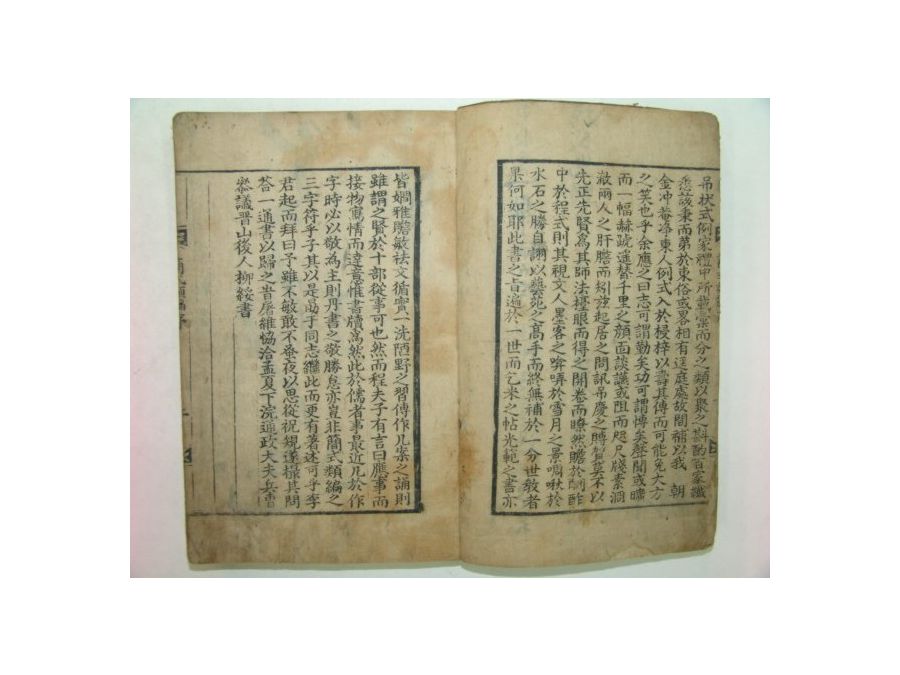 吊狀式例家禮中所載彙而分之類以聚之斟酌百家纖
悉該秉而第於東俗或畧相有逕庭處故間補以我　朝
金冲菴淨東人例式入於梓以壽其傳而可能免大方
之笑也乎余應之曰志可謂勤矣功可謂博矣聲聞或曠
而一幅赫蹏遞替千里之顔面談讌或阻而咫尺牋素洞
澈兩人之肝膽而矧玆起居之問訊吊慶之賻贄莫不以
先正先賢爲其師法擡眼而得之開卷而瞭然瞻於酬酢
中於程式則其視文人墨客之啽哢於雪月之景啾於
水石之勝自詡以藝苑之高手而終無補於一分世敎者
果何如耶此書之苟遍於一世而乞米之帖光範之書亦
皆嫺雅贍敏袪文循實一洗陋野之習傳作几案之誦則
雖謂之賢於十部從事可也然而程夫子有言曰應事而
接物寫情而達意惟書牘爲然此於儒者事最近凡於作
字時必以敬為主則丹書之敬勝怠亦豈非簡式類編之
三字符乎子其以是勗于同志繼此而更有著述可乎李
君起而拜曰予雖不敏敢不蚤夜以思從祝規遂採其問
答一通書以歸之昔屠維協洽孟夏下浣通政大夫兵曹
叅議晋山後人柳綏書